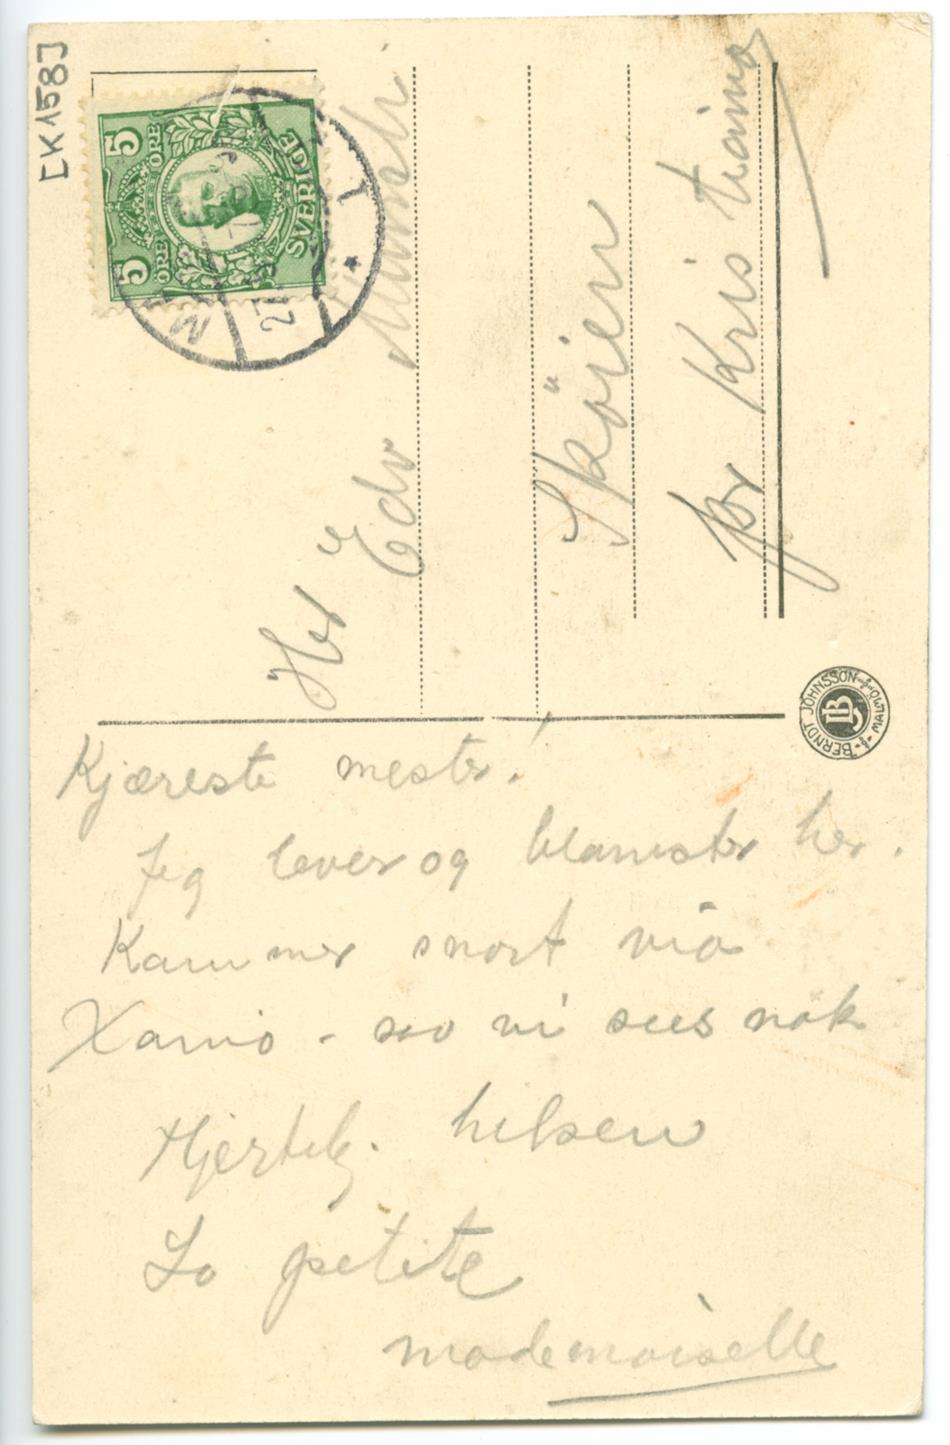 [K158]
5 5
ÖRE ÖRE
SVERIGE
27
Hr Edv Munch
Sköien
pr Kristiania
BERNDT JOHNSSON MALMÖ
BJ
Kjæreste mester!
Jeg lever og blomster her.
Kommer snart via
Xania - saa vi sees nok
Hjertelg. hilsen
La petite
mademoiselle